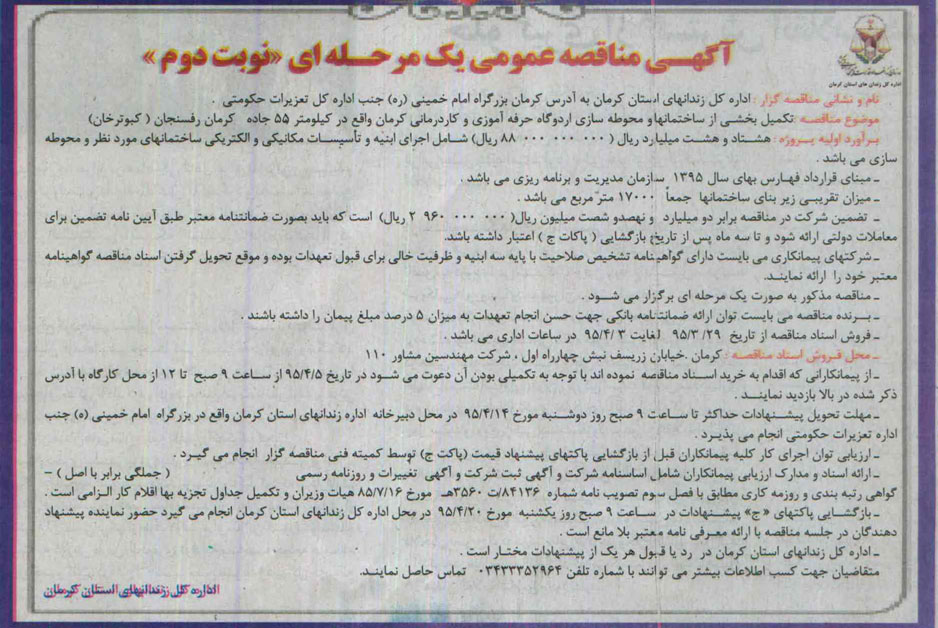 اداره کل زندان های استان کرمان
آگهی مناقصه عمومی یک مرحله ای «نوبت دوم»
نام و نشانی مناقصه گزار : اداره کل زندانهای استان کرمان به آدرس کرمان بزرگراه امام خمینی (ره) جنب اداره کل تعزیرات حکومتی .
موضوع مناقصه :تکمیل بخشی از ساختمانهاو محوطه سازی اردوگاه حرفه آموزی و کاردرمانی کرمان واقع در کیلومتر ۵۵ جاده کرمان رفسنجان ( کبوترخان)
برآورد اولیه پروژه : هشتاد و هشت میلیارد ریال ( ۰۰۰ ۰۰۰ ۰۰۰ ۸۸ ریال) شامل اجرای ابنیه و تأسیسات مکانیکی و الکتریکی ساختمانهای مورد نظر و محوطه
سازی می باشد .
ـ مبنای قرارداد فهارس بهای سال ۱۳۹۵ سازمان مدیریت و برنامه ریزی می باشد .
ـ میزان تقریبی زیر بنای ساختمانها جمعاً ۱۷۰۰۰ متر مربع می باشد .
ـ تضمین شرکت در مناقصه برابر دو میلیارد و نهصدو شصت میلیون ریال( ۰۰۰ ۰۰۰ ۹۶۰ ۲ ریال) است که باید بصورت ضمانتنامه معتبر طبق آیین نامه تضمین برای
معاملات دولتی ارائه شود و تا سه ماه پس از تاریخ بازگشایی ( پاکات ج ) اعتبار داشته باشد.
ـ شرکتهای پیمانکاری می بایست دارای گواهینامه تشخیص صلاحیت با پایه سه ابنیه و ظرفیت خالی برای قبول تعهدات بوده و موقع تحویل گرفتن اسناد مناقصه گواهینامه
معتبر خود را ارائه نمایند.
ـ مناقصه مذکور به صورت یک مرحله ای برگزار می شود .
ـ برنده مناقصه می بایست توان ارائه ضمانتنامه بانکی جهت حسن انجام تعهدات به میزان ۵ درصد مبلغ پیمان را داشته باشند .
ـ فروش اسناد مناقصه از تاریخ ۹۵/۳/۲۹ لغایت ۹۵/۴/۳ در ساعات اداری می باشد .
ـ محل فروش اسناد مناقصه : کرمان .خیابان زریسف نبش چهارراه اول ، شرکت مهندسین مشاور ۱۱۰
ـ از پیمانکارانی که اقدام به خرید اسناد مناقصه نموده اند با توجه به تکمیلی بودن آن دعوت می شود در تاریخ ۹۵/۴/۵ از ساعت ۹ صبح تا ۱۲ از محل کارگاه با آدرس
ذکر شده در بالا بازدید نمایند .
ـ مهلت تحویل پیشنهادات حداکثر تا ساعت ۹ صبح روز دوشنبه مورخ ۹۵/۴/۱۴ در محل دبیرخانه اداره زندانهای استان کرمان واقع در بزرگراه امام خمینی (ه) جنب
اداره تعزیرات حکومتی انجام می پذیرد .
ـ ارزیابی توان اجرای کار کلیه پیمانکاران قبل از بازگشایی پاکتهای پیشنهاد قیمت (پاکت ج) توسط کمیته فنی مناقصه گزار انجام می گیرد .
ـ ارائه اسناد و مدارک ارزیابی پیمانکاران شامل اساسنامه شرکت و آگهی ثبت شرکت و آگهی تغییرات و روزنامه رسمی ( جملگی برابر با اصل ) –
گواهی رتبه بندی و روزمه کاری مطابق با فصل سوم تصویب نامه شماره ۸۴۱۳۶/ت ۳۵۶۰هـ مورخ ۸۵/۷/۱۶ هیات وزیران و تکمیل جداول تجزیه بها اقلام کار الزامی است .
ـ بازگشایی پاکتهای « ج» پیشنهادات در ساعت ۹ صبح روز یکشنبه مورخ ۹۵/۴/۲۰ در محل اداره کل زندانهای استان کرمان انجام می گیرد حضور نماینده پیشنهاد
دهندگان در جلسه مناقصه با ارائه معرفی نامه معتبر بلا مانع است .
ـ اداره کل زندانهای استان کرمان در رد یا قبول هر یک از پیشنهادات مختار است .
متقاضیان جهت کسب اطلاعات بیشتر می توانند با شماره تلفن ۰۳۴۳۳۳۵۲۹۶۴ تماس حاصل نمایند.
اداره کل زندانهای استان کرمان